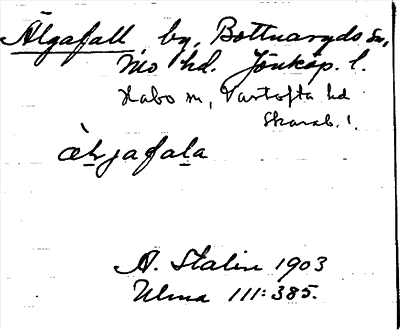 Älgafall by, Bottnaryds sn,
Mo hd. Jönköp. l.
Habo sn, Vartofta hd
Skarab. l.
A. Stalin 1903
Ulma 111:385.